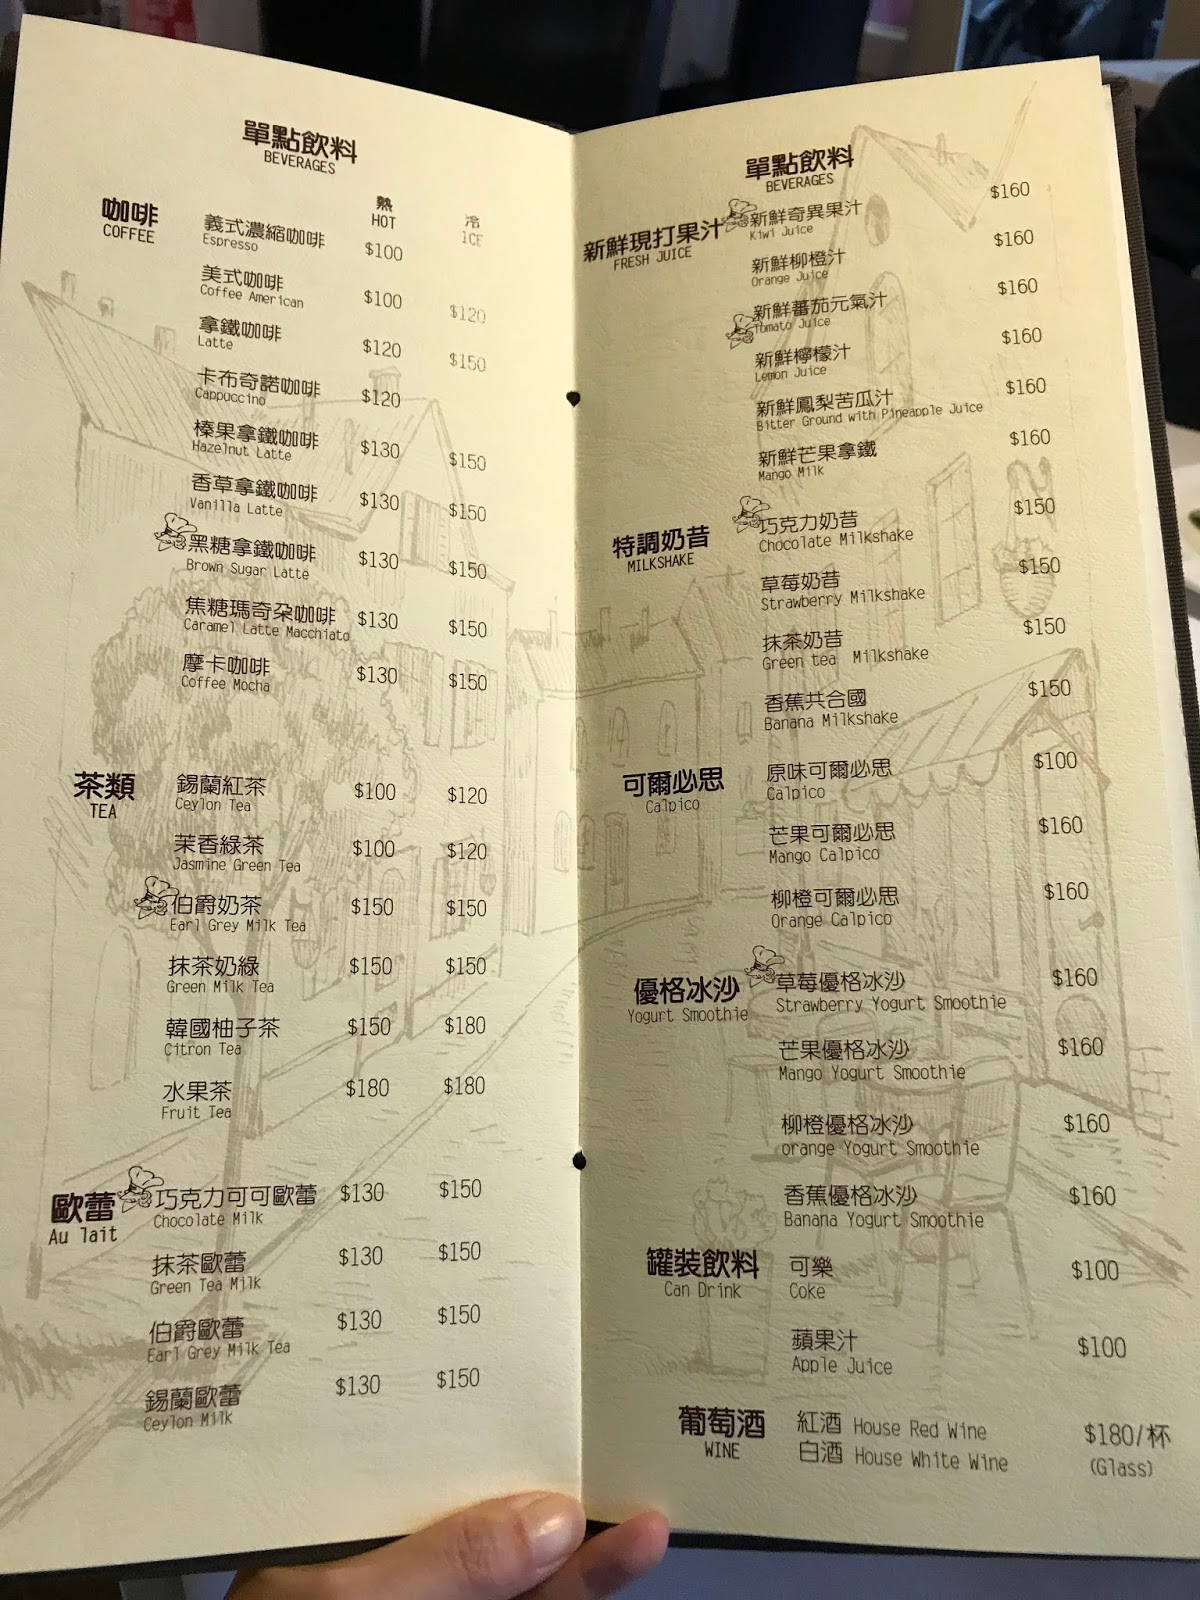 單點飲料
BEVERAGES
熱 冷
HOT ICE
咖啡
COFFEE
義式濃縮咖啡 $100
Espresso
美式咖啡 $100 $120
Coffee American
拿鐵咖啡 $120 $150
Latte
卡布奇諾咖啡 $120
Cappuccino
榛果拿鐵咖啡 $130 $150
Hazelnut Latte
香草拿鐵咖啡 $130 $150
Vanilla Latte
黑糖拿鐵咖啡 $130 $150
Brown Sugar Latte
焦糖瑪奇朵咖啡 $130 $150
Caramel Latte Macchiato
摩卡咖啡 $130 $150
Coffee Mocha
茶類
TEA
錫蘭紅茶 $100 $120
Ceylon Tea
茉香綠茶 $100 $120
Jasmine Green Tea
伯爵奶茶 $150 $150
Earl Grey Milk Tea
抹茶奶綠 $150 $150
Green Milk Tea
韓國柚子茶 $150 $180
Citron Tea
水果茶 $180 $180
Fruit Tea
歐蕾
Au lait
巧克力可可歐蕾 $130 $150
Chocolate Milk
抹茶歐蕾 $130 $150
Green Tea Milk
伯爵歐蕾 $130 $150
Earl Grey Milk Tea
錫蘭歐蕾 $130 $150
Ceylon Milk
單點飲料
BEVERAGES
新鮮現打果汁
FRESH JUICE
新鮮奇異果汁 $160
Kiwi Juice
新鮮柳橙汁 $160
Orange Juice
新鮮蕃茄元氣汁 $160
Tomato Juice
新鮮檸檬汁 $160
Lemon Juice
新鮮鳳梨苦瓜汁 $160
Bitter Ground with Pineapple Juice
新鮮芒果拿鐵 $160
Mango Milk
特調奶昔
MILKSHAKE
巧克力奶昔 $150
Chocolate Milkshake
草莓奶昔 $150
Strawberry Milkshake
抹茶奶昔 $150
Green tea Milkshake
香蕉共合國 $150
Banana Milkshake
可爾必思
Calpico
原味可爾必思 $100
Calpico
芒果可爾必思 $160
Mango Calpico
柳橙可爾必思 $160
Orange Calpico
優格冰沙
Yogurt Smoothie
草莓優格冰沙 $160
Strawberry Yogurt Smoothie
芒果優格冰沙 $160
Mango Yogurt Smoothie
柳橙優格冰沙 $160
orange Yogurt Smoothie
香蕉優格冰沙 $160
Banana Yogurt Smoothie
罐裝飲料
Can Drink
可樂 $100
Coke
蘋果汁 $100
Apple Juice
葡萄酒
WINE
紅酒 House Red Wine $180/杯
白酒 House White Wine (Glass)